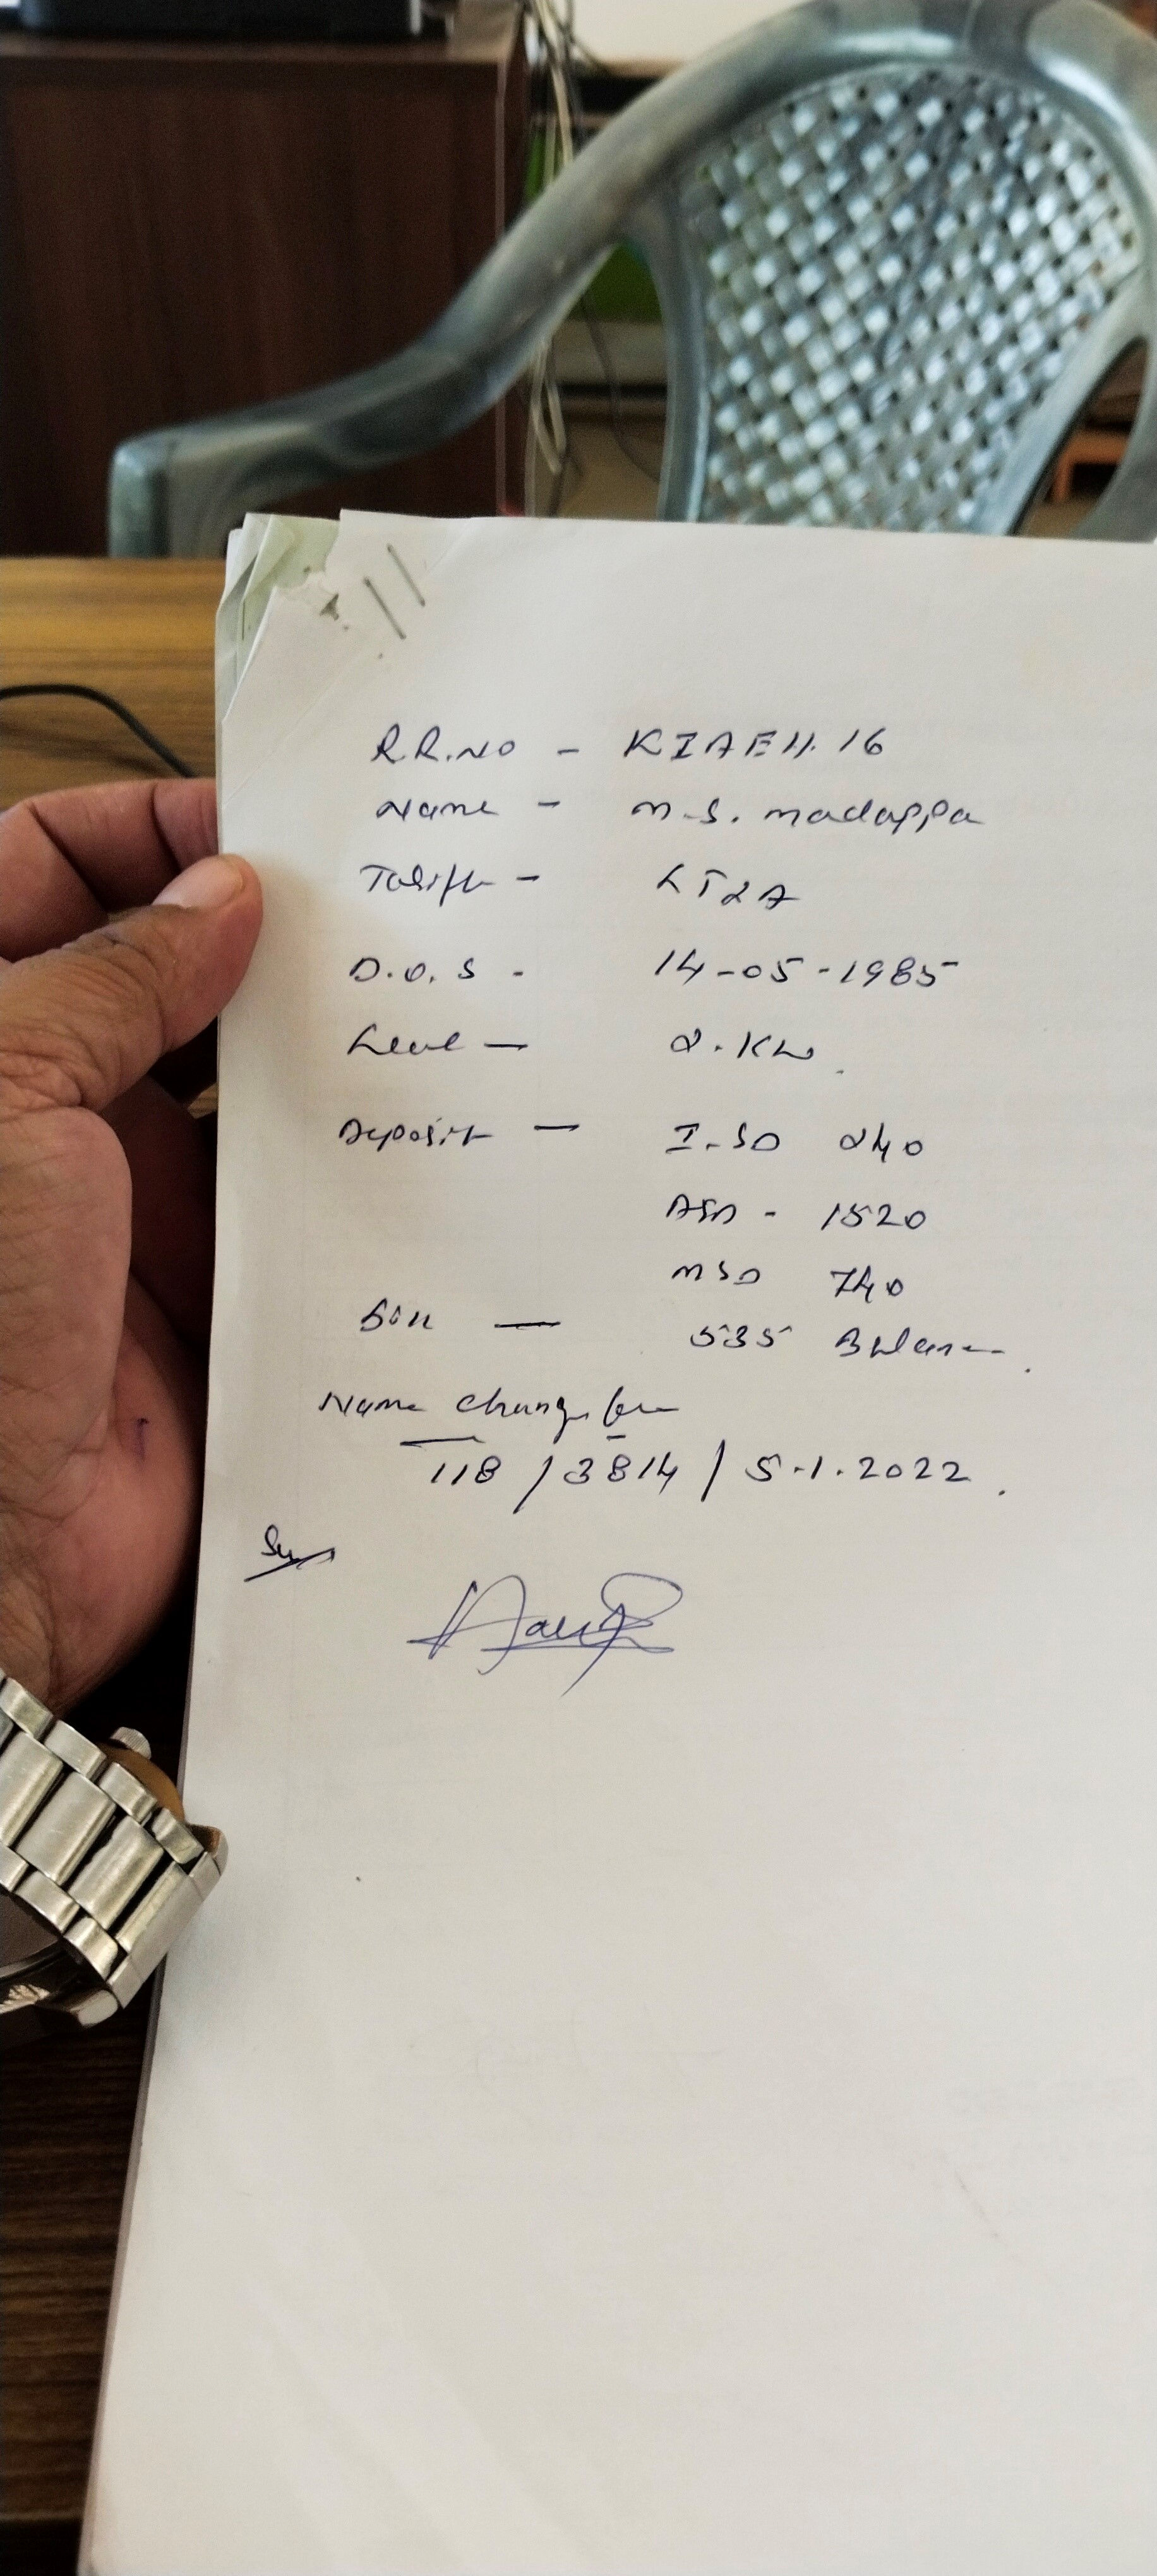 R.R.NO - KIAEH.16
Name - M.S. Madappa
Tariff - LT2A
D.O.S - 14-05-1985
Load - 2.KW.
Deposit - I.SD 240
ASD - 1520
MSD 740
Bill - 535 Balance.
Name change fee
118 / 3814 / 5.1.2022.